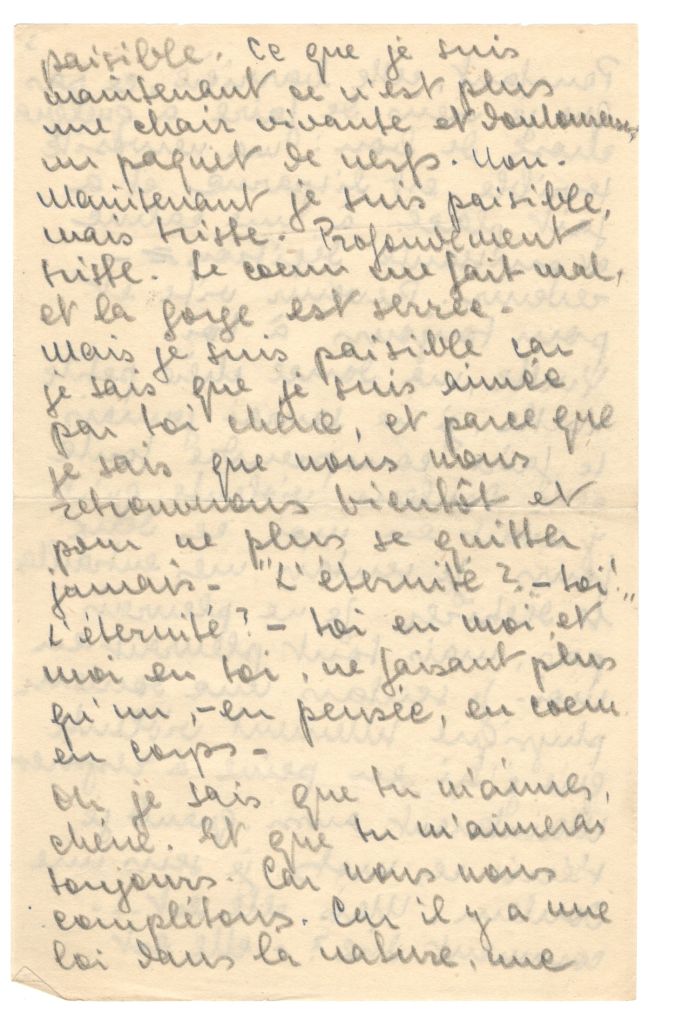 paisible. Ce que je suis
maintenant ce n'est plus
une chair vivante et douloureuse,
un paquet de nerfs. Non.
Maintenant je suis paisible,
mais triste. Profondément
triste. Le coeur me fait mal,
et la gorge est serrée.
Mais je suis paisible car
je sais que je suis aimée
par toi chéri, et parce que
je sais que nous nous
retrouverons bientôt et
pour ne plus se quitter
jamais - "L'éternité ? - toi!"
L'éternité ? - toi en moi et
moi en toi, ne faisant plus
qu'un, - en pensée, en coeur
en corps -
Oh je sais que tu m'aimes,
chéri. Et que tu m'aimeras
toujours. Car nous nous
complétons. Car il y a une
loi dans la nature, une